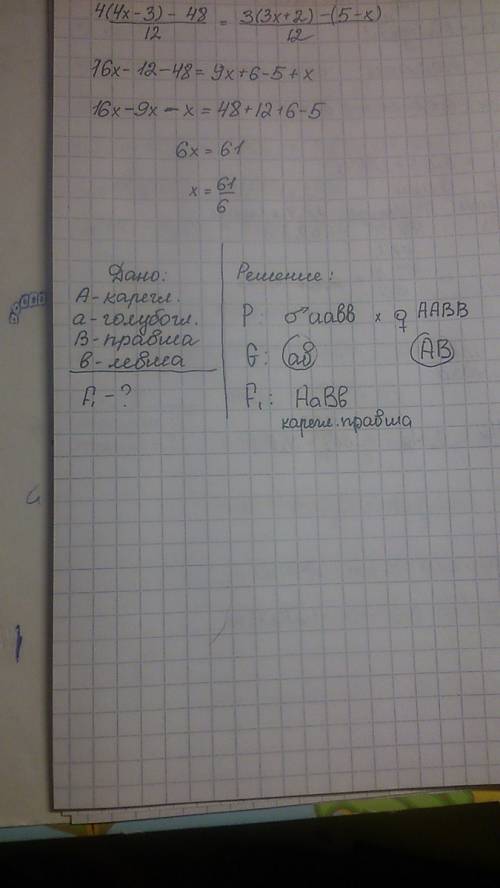 4(4x-3) - 48 / 12 = 3(3x+2) - (5-x) / 12
16x - 12 - 48 = 9x + 6 - 5 + x
16x - 9x - x = 48 + 12 + 6 - 5
6x = 61
x = 61/6
Дано:
А - карегл.
а - голубогл.
В - правша
в - левша
F₁ - ?
Решение:
P: ♂ аавв x ♀ ААВВ
G: ав АВ
F₁: АаВв
карегл. правша